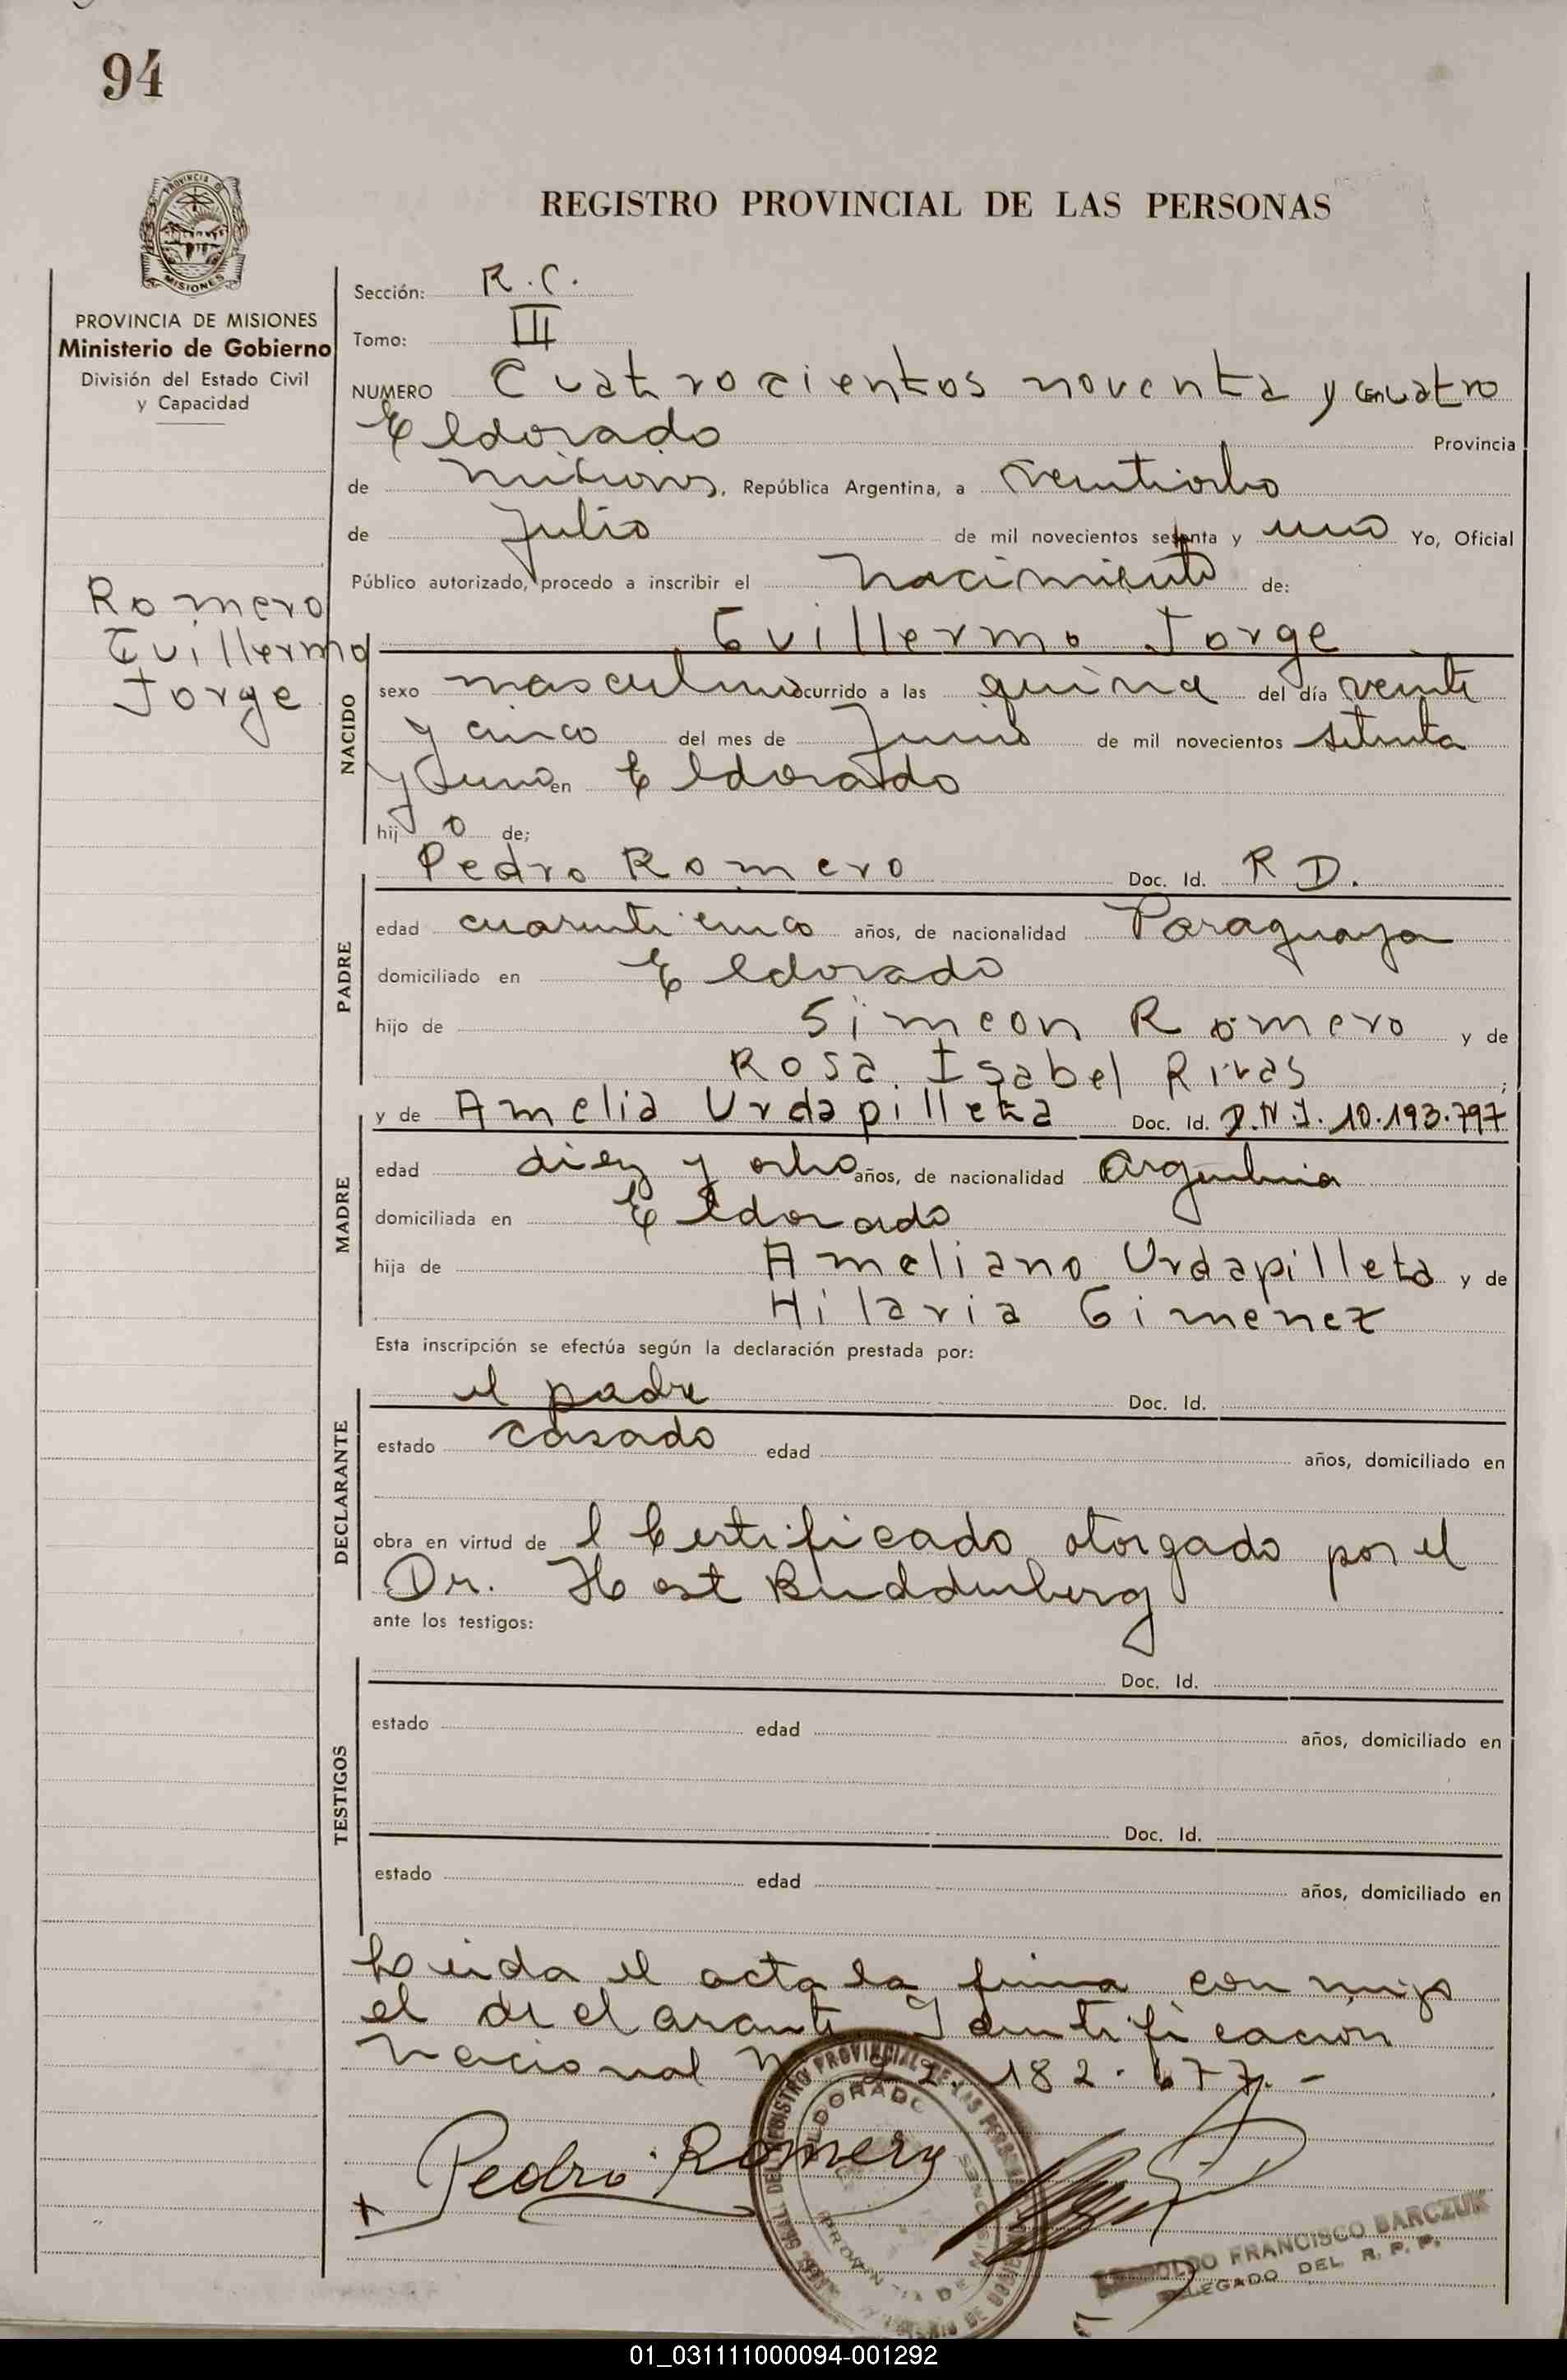 94
PROVINCIA DE
MISIONES
REGISTRO PROVINCIAL DE LAS PERSONAS
PROVINCIA DE MISIONES
Ministerio de Gobierno
División del Estado Civil
y Capacidad
Romero
Guillermo
Jorge
Sección: R.C.
Tomo: III
NUMERO Cuatrocientos noventa y cuatro
Eldorado Provincia
de Misiones, República Argentina, a veintiocho
de Julio de mil novecientos setenta y uno Yo, Oficial
Público autorizado, procedo a inscribir el nacimiento de:
Guillermo Jorge
NACIDO
sexo masculino ocurrido a las quince del día veinte
y cinco del mes de Junio de mil novecientos setenta
y uno en Eldorado
hij o de;
Pedro Romero Doc. Id. R D.
PADRE
edad cuarenticinco años, de nacionalidad Paraguaya
domiciliado en Eldorado
hijo de Simeon Romero y de
Rosa Isabel Rivas ;
y de Amelia Urdapilleta Doc. Id. D.N.I. 10.193.797
MADRE
edad diez y ocho años, de nacionalidad Argentina
domiciliada en Eldorado
hija de Ameliano Urdapilleta y de
Hilaria Gimenez
Esta inscripción se efectúa según la declaración prestada por:
el padre Doc. Id.
DECLARANTE
estado casado edad años, domiciliado en
obra en virtud de l Certificado otorgado por el
Dr. Host Buddenberg
ante los testigos:
Doc. Id.
TESTIGOS
estado edad años, domiciliado en
Doc. Id.
estado edad años, domiciliado en
Leida el acta la firma con migo
el declarante Identificacion
Nacional N 182.677.-
Pedro Romero
REGISTRO PROVINCIAL DE LAS
ELDORADO
PROVINCIA DE MISIONES
FRANCISCO BARCZUK
DELEGADO DEL R. P. P.
01_031111000094-001292